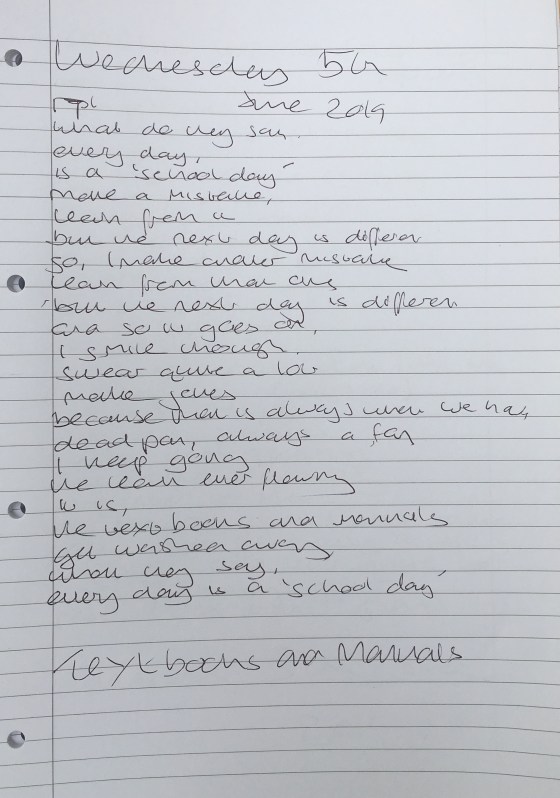 Wednesday 5th
June 2019
what do they say
every day,
is a 'school day'
make a mistake,
learn from it
but the next day is different
so, I make another mistake
learn from that one
but the next day is different
and so it goes on,
I smile though,
swear quite a lot
make jokes
because that is always what we have
dead pan, always a fan
I keep going
the learn ever flowing
it is,
the text books and manuals
get washed away
what they say,
every day is a 'school day'
Textbooks and Manuals